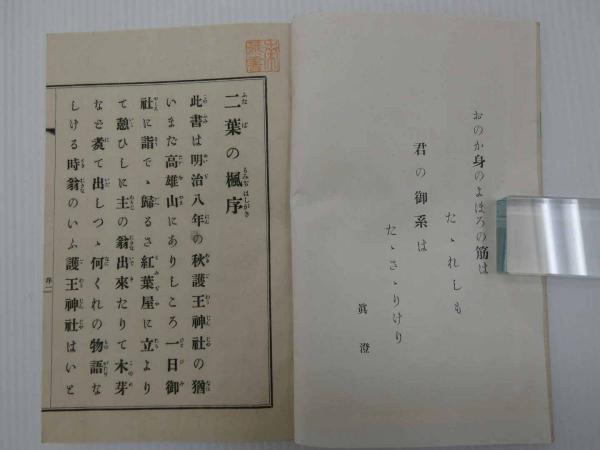 おのか身のよほろの筋は
たゝれしも
君の御系は
たゝさゝりけり
眞澄
二葉の楓序
此書は明治八年の秋護王神社の猶
いまた高雄山にありしころ一日御
社に詣でゝ歸るさ紅葉屋に立より
て憩ひしに主の翁出來たりて木芽
なと煮て出しつゝ何くれの物語な
しける時翁のいふ護王神社はいと
序一